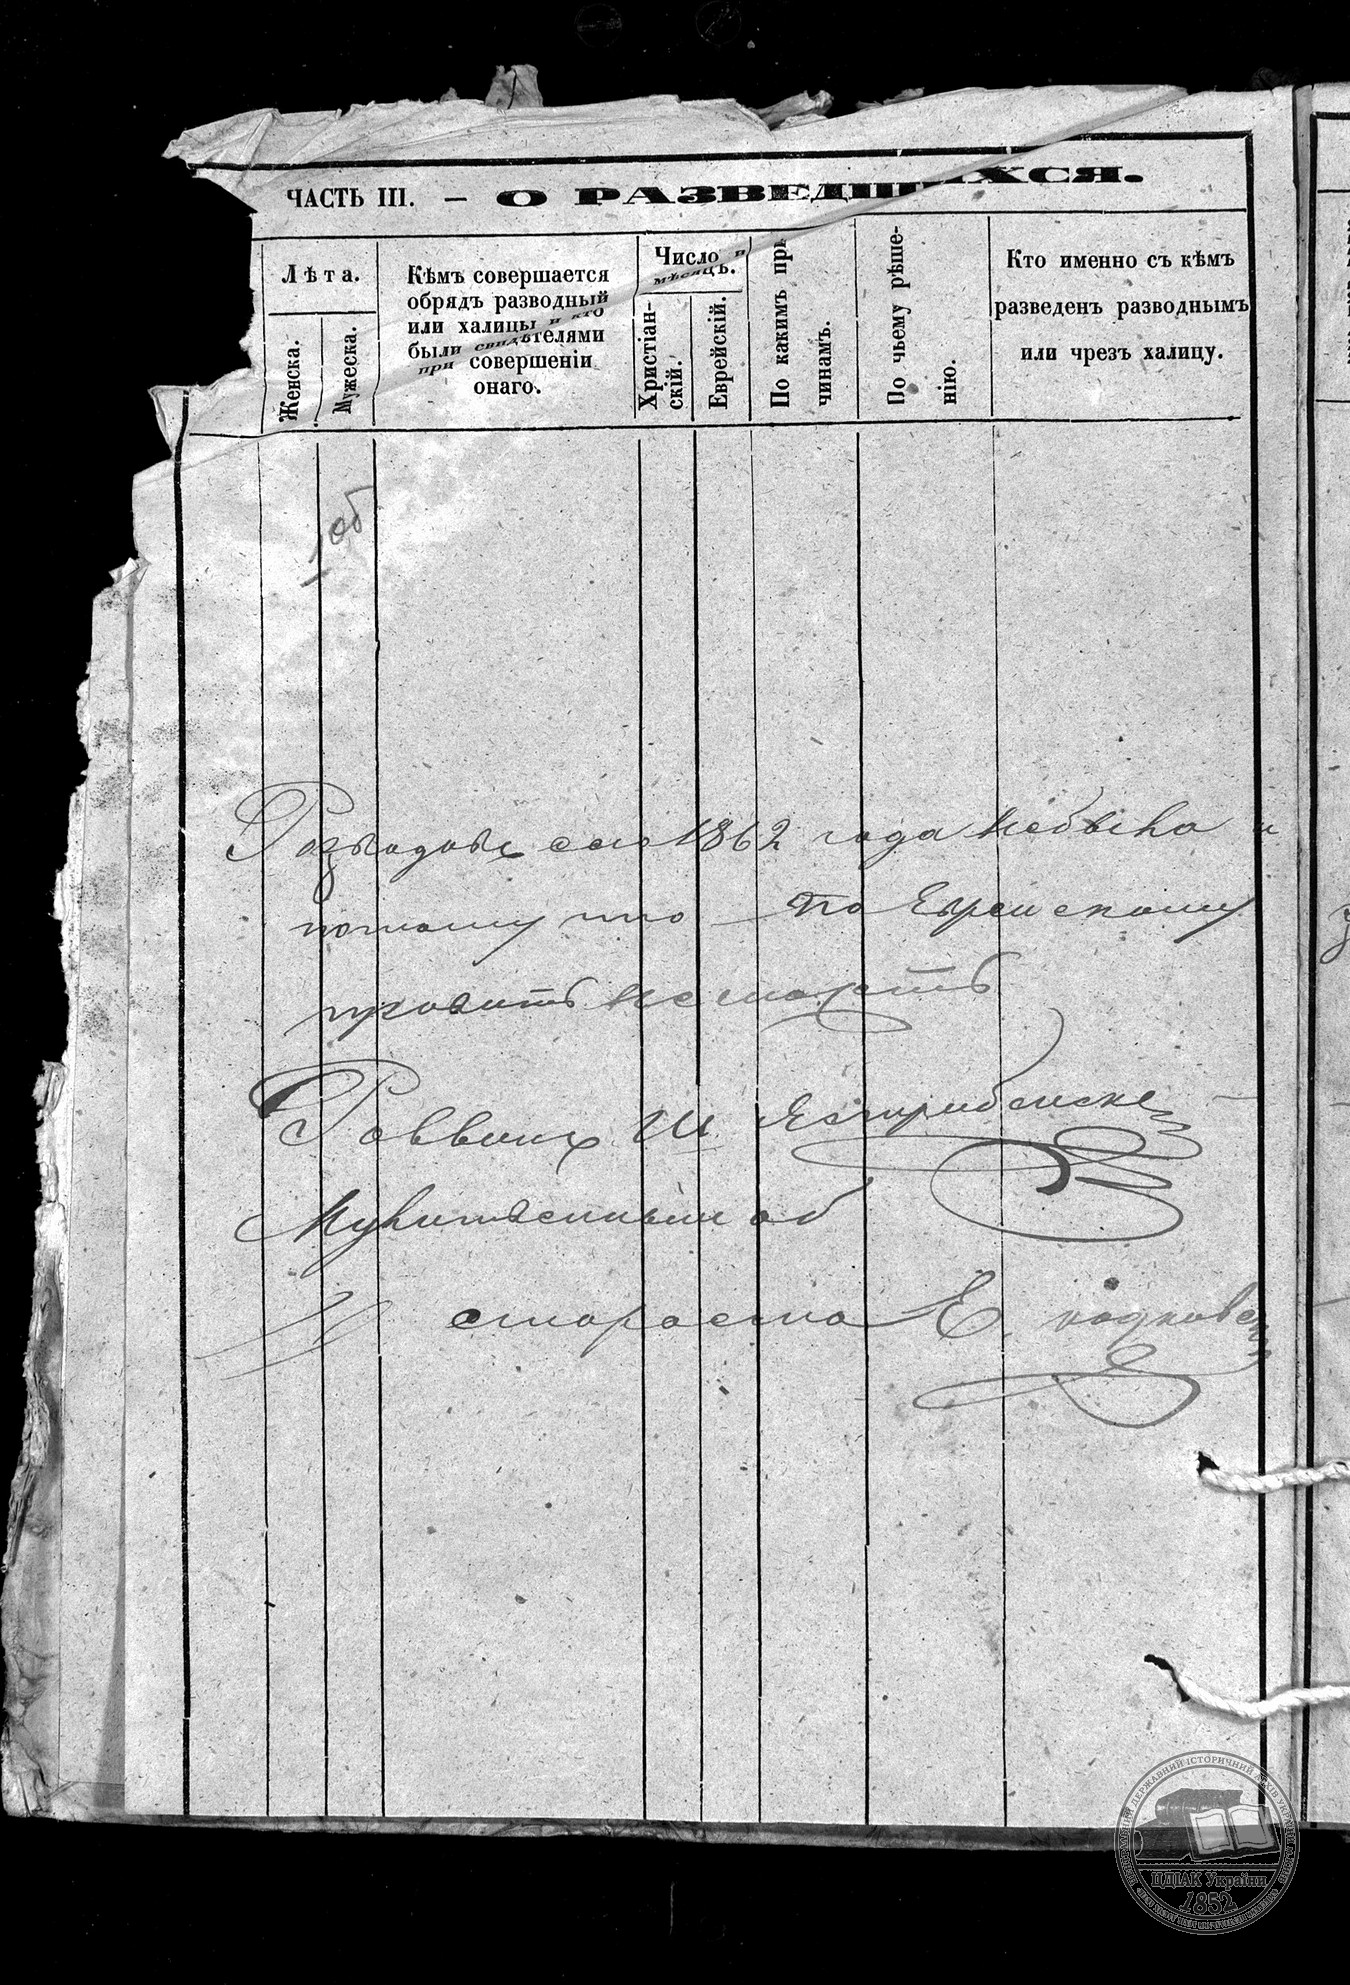 ЧАСТЬ III. — О РАЗВЕДШИХСЯ.
Лѣта.
Женска.
Мужеска.
Кѣмъ совершается
обрядъ разводный
или халицы и кто
были свидѣтелями
при совершеніи
онаго.
Число и
мѣсяцъ.
Христіан-
скій.
Еврейскій.
По какимъ при
чинамъ.
По чьему рѣше-
нію.
Кто именно съ кѣмъ
разведенъ разводнымъ
или чрезъ халицу.
1об
Разводовъ сего 1862 года небыло и
потому что по Еврейскому
Раввинъ Ш
староста Е.
ЦЕНТРАЛЬНИЙ ДЕРЖАВНИЙ ІСТОРИЧНИЙ АРХІВ УКРАЇНИ
ЦДІАК України
1852